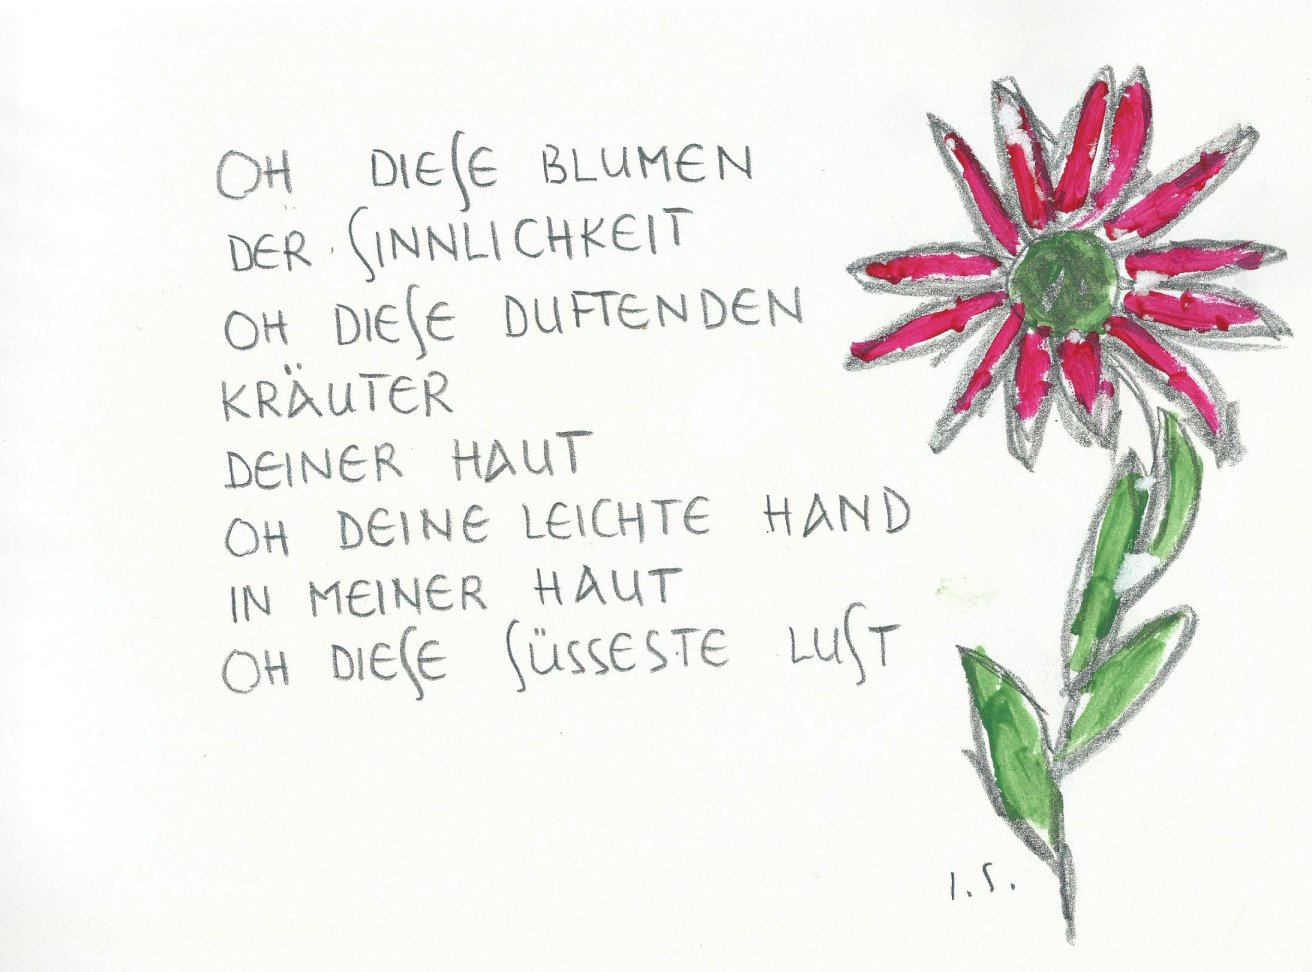 OH DIESE BLUMEN
DER SINNLICHKEIT
OH DIESE DUFTENDEN
KRÄUTER
DEINER HAUT
OH DEINE LEICHTE HAND
IN MEINER HAUT
OH DIESE SÜSSESTE LUST
I.S.